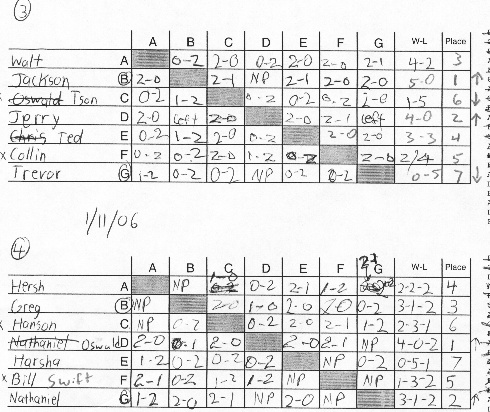 ③
A B C D E F G W-L Place
Walt A 0-2 2-0 0-2 2-0 2-0 2-1 4-2 3
Jackson B 2-0 2-1 NP 2-1 2-0 2-0 5-0 1 ↑
Oswald Tson C 0-2 1-2 0-2 0-2 0-2 2-0 1-5 6 ↓
Jerry D 2-0 left 2-0 2-0 2-1 left 4-0 2 ↑
Chris Ted E 0-2 1-2 2-0 0-2 2-0 2-0 3-3 4
x Collin F 0-2 0-2 2-0 1-2 0-2 2-0 2/4 5
Trevor G 1-2 0-2 0-2 NP 0-2 0-2 0-5 7 ↓
1/11/06
④
A B C D E F G W-L Place
Hersh A NP 1-0 0-2 2-1 1-2 2-2-2 4
Greg B NP 2-0 1-0 2-0 2-0 0-2 3-1-2 3
x Hanson C NP 0-2 0-2 2-0 2-1 1-2 2-3-1 6
Nathaniel Oswald D 2-0 0-1 2-0 2-0 2-1 NP 4-0-2 1 ↑
Harsha E 1-2 0-2 0-2 0-2 NP 0-2 0-5-1 7
x Bill Swift F 2-1 0-2 1-2 1-2 NP NP 1-3-2 5
Nathaniel G 1-2 2-0 2-1 NP 2-0 NP 3-1-2 2 ↑